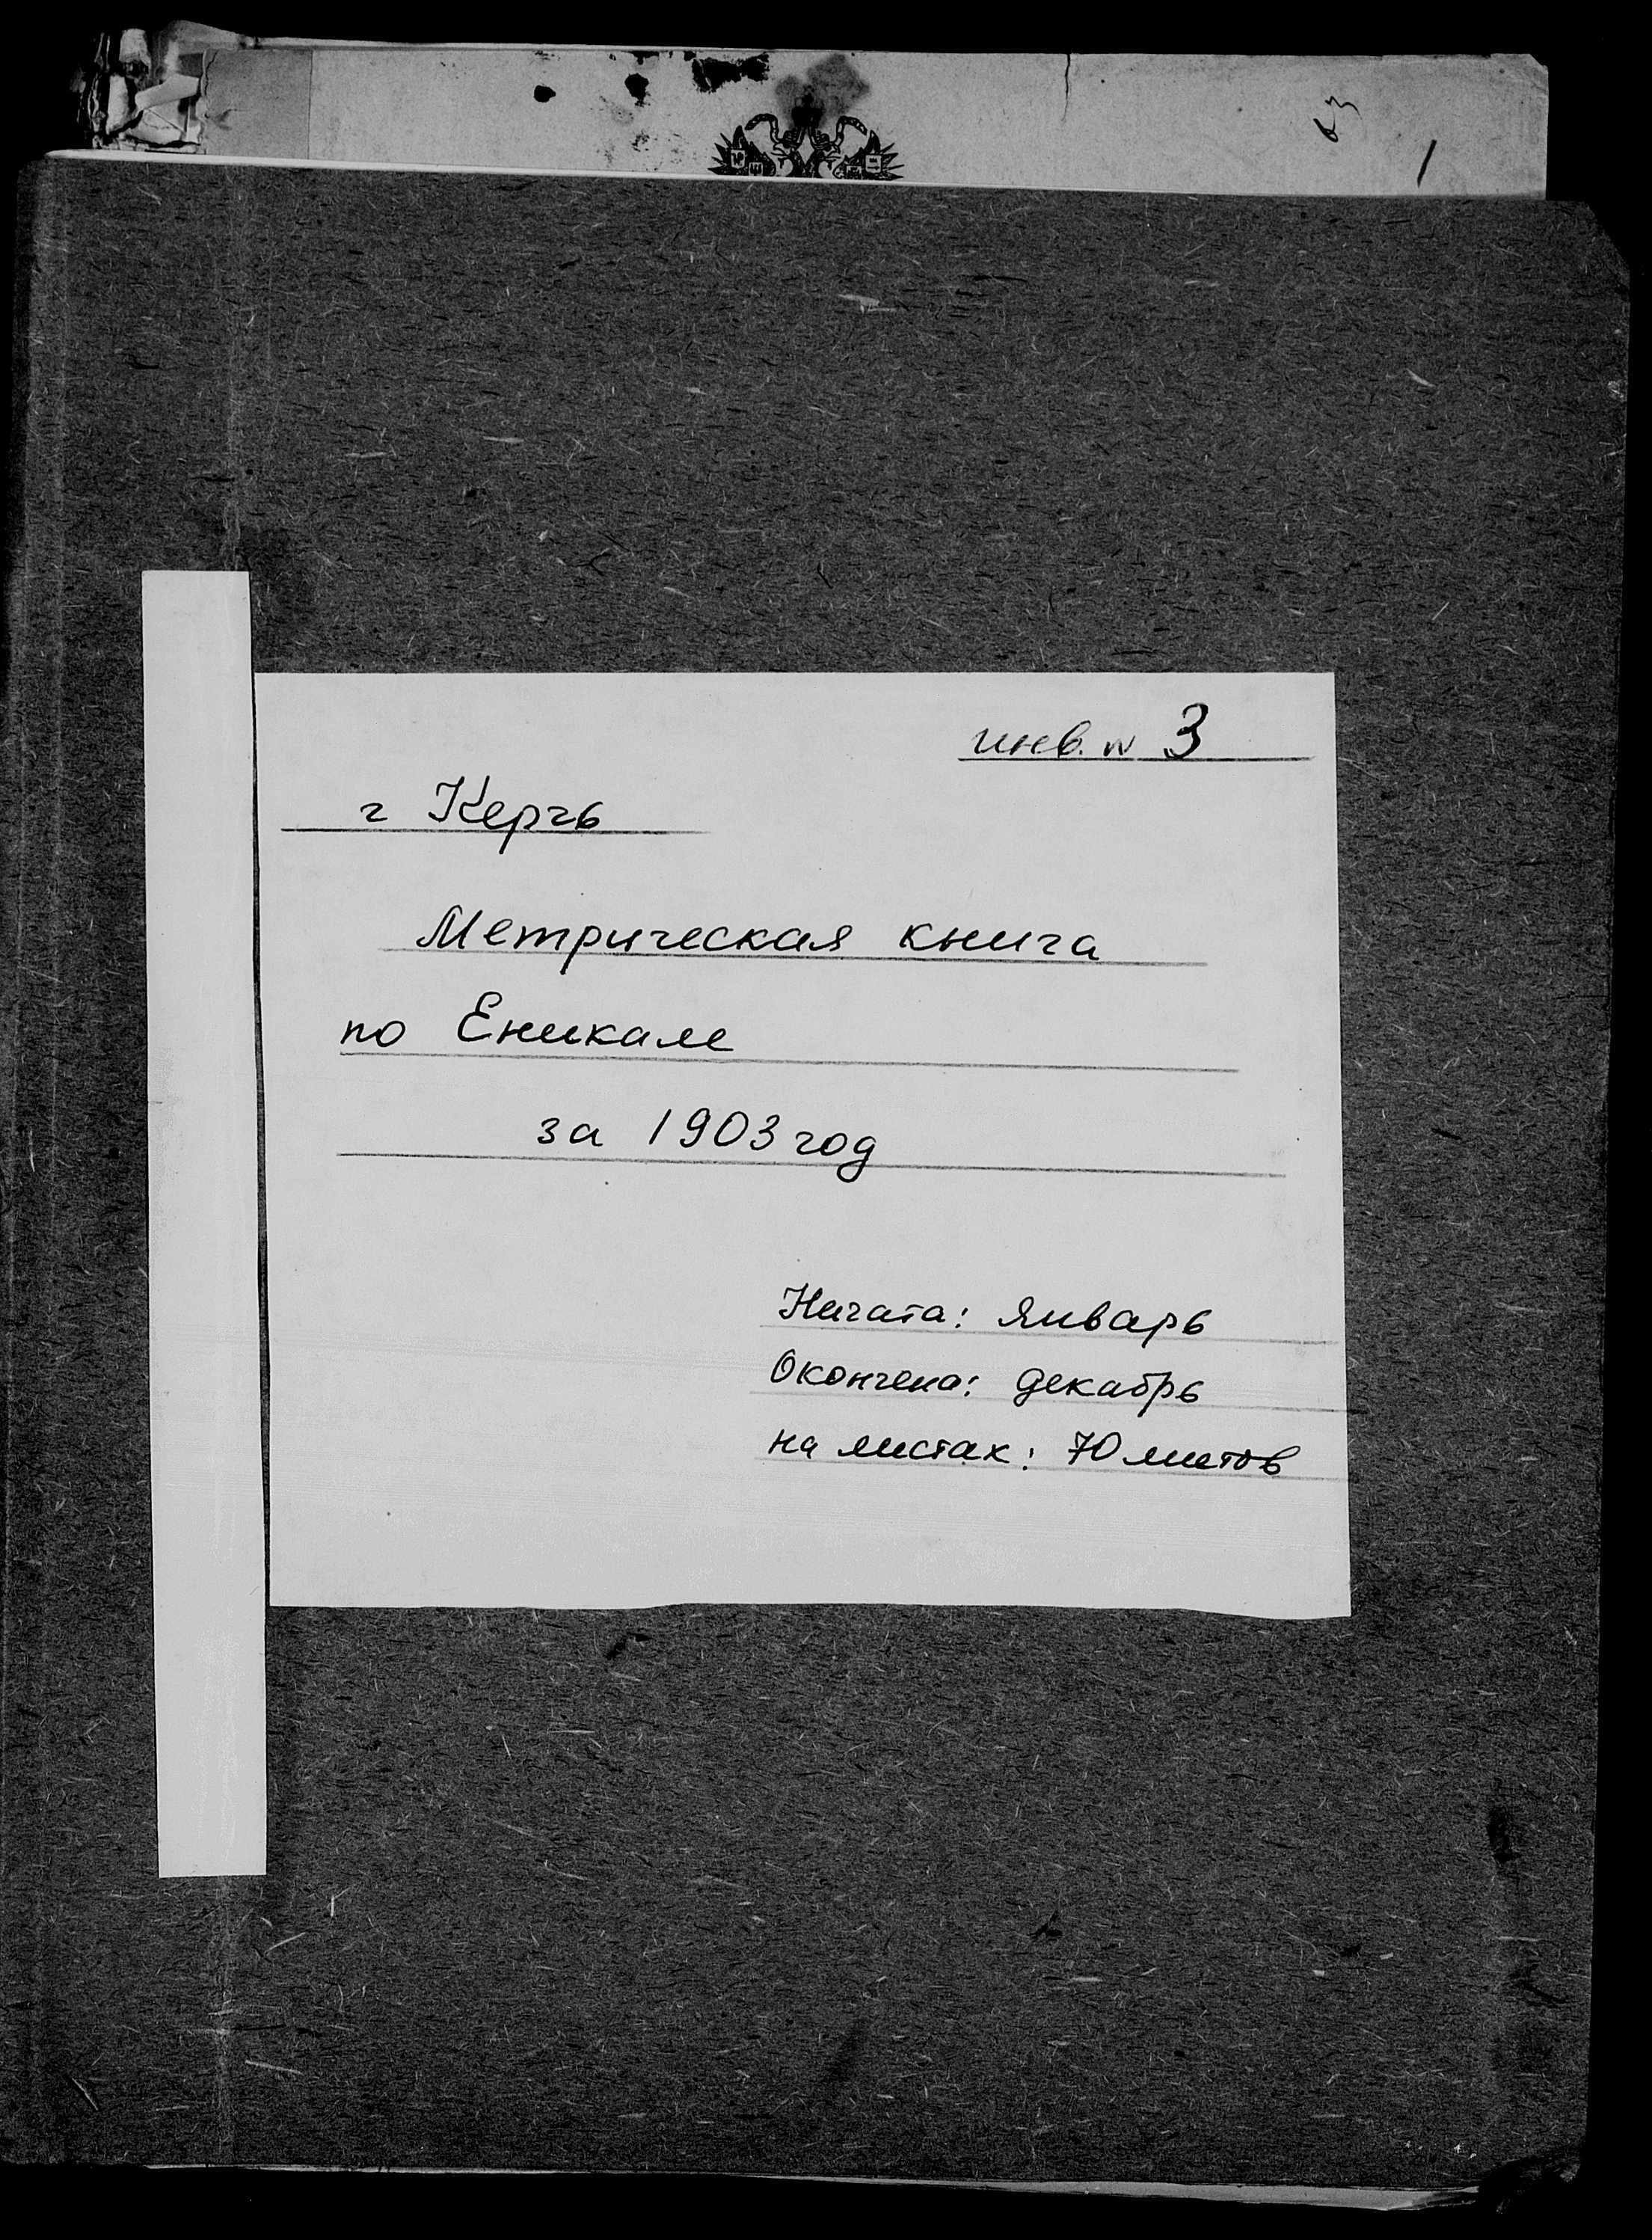 1
инв. N 3
г Керчь
Метрическая книга
по Еникале
за 1903 год
Начата: январь
Окончена: декабрь
на листах: 70 листов